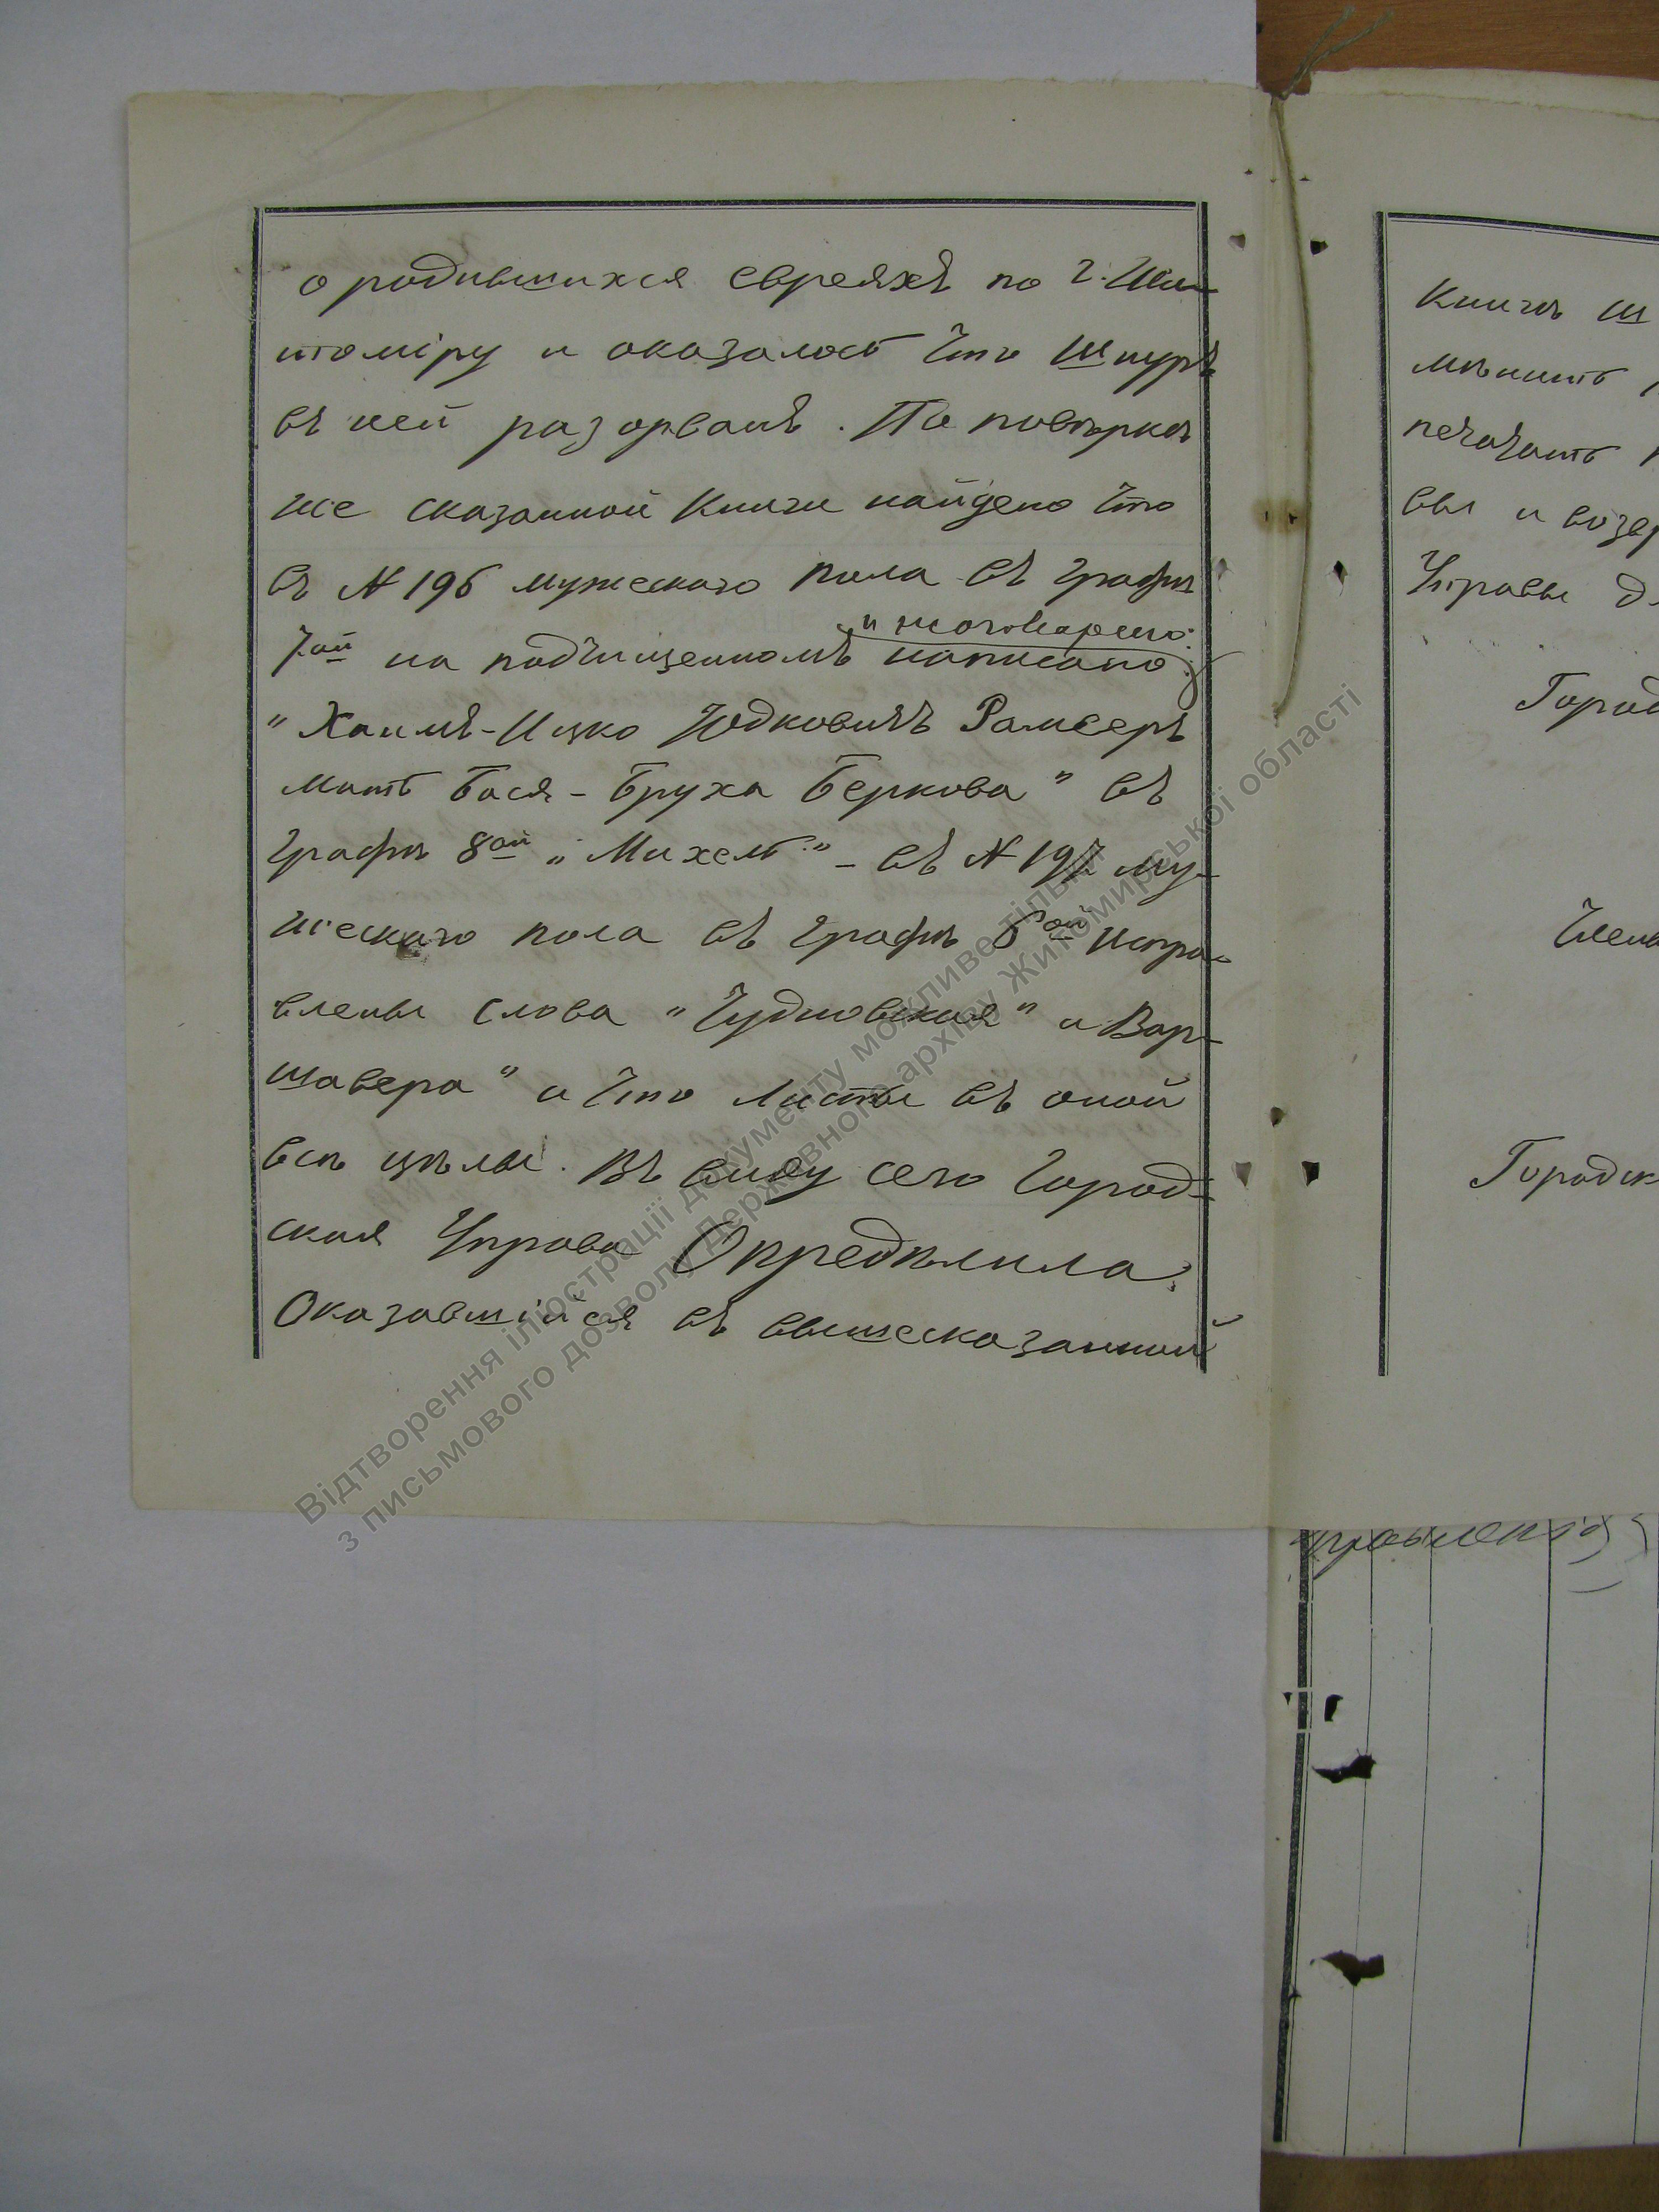 о родившихся евреяхъ по г. Жи-
томіру и оказалось что шнуръ
въ ней разорванъ. По повѣркѣ
же сказанной книги найдено что
въ № 196 мужескаго пола въ графѣ
и неоговорено
7ой на подчищенномъ написано:
"Хаимъ-Ицко Юдковичъ Рамсеръ
мать Бася-Бруха Беркова" въ
графѣ 8ой "Михель" - въ № 197 му-
жескаго пола въ графѣ 6ой испра-
влены слова "Чудновская" и Вар-
шавера" и что листы въ оной
всѣ цѣлы. Въ виду сего Город-
ская Управа Опредѣлила:
Оказавшійся въ вышесказанной
книгѣ ш
печатать
вы и возвр
Управы д
Город
Член
Городск
Відтворення ілюстрації документу можливе тільки
з письмового дозволу Державного архіву Житомирської області